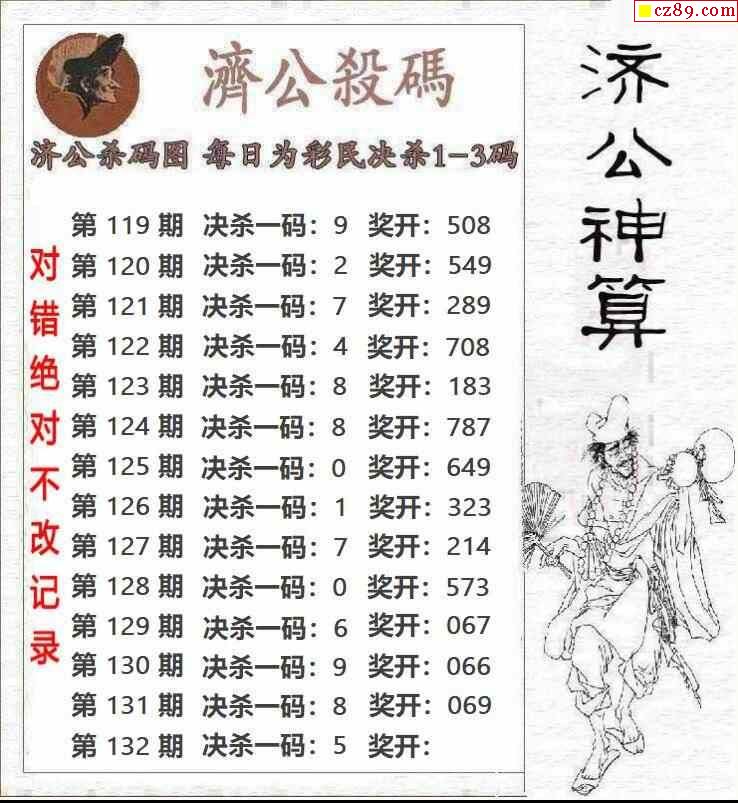 cz89.com
濟公殺碼
济公杀码图 每日为彩民决杀1-3码
第 119 期 决杀一码：9 奖开：508
第 120 期 决杀一码：2 奖开：549
第 121 期 决杀一码：7 奖开：289
第 122 期 决杀一码：4 奖开：708
第 123 期 决杀一码：8 奖开：183
第 124 期 决杀一码：8 奖开：787
第 125 期 决杀一码：0 奖开：649
第 126 期 决杀一码：1 奖开：323
第 127 期 决杀一码：7 奖开：214
第 128 期 决杀一码：0 奖开：573
第 129 期 决杀一码：6 奖开：067
第 130 期 决杀一码：9 奖开：066
第 131 期 决杀一码：8 奖开：069
第 132 期 决杀一码：5 奖开：
对错绝对不改记录
济公神算